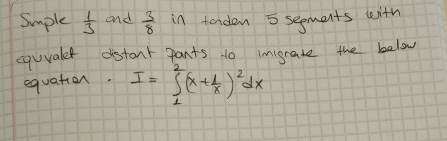 Simple 1/3 and 3/8 in tandem 5 segments with
equvalet distant points to imigrate the below
equation. I = ∫₁² (x + 1/x)² dx